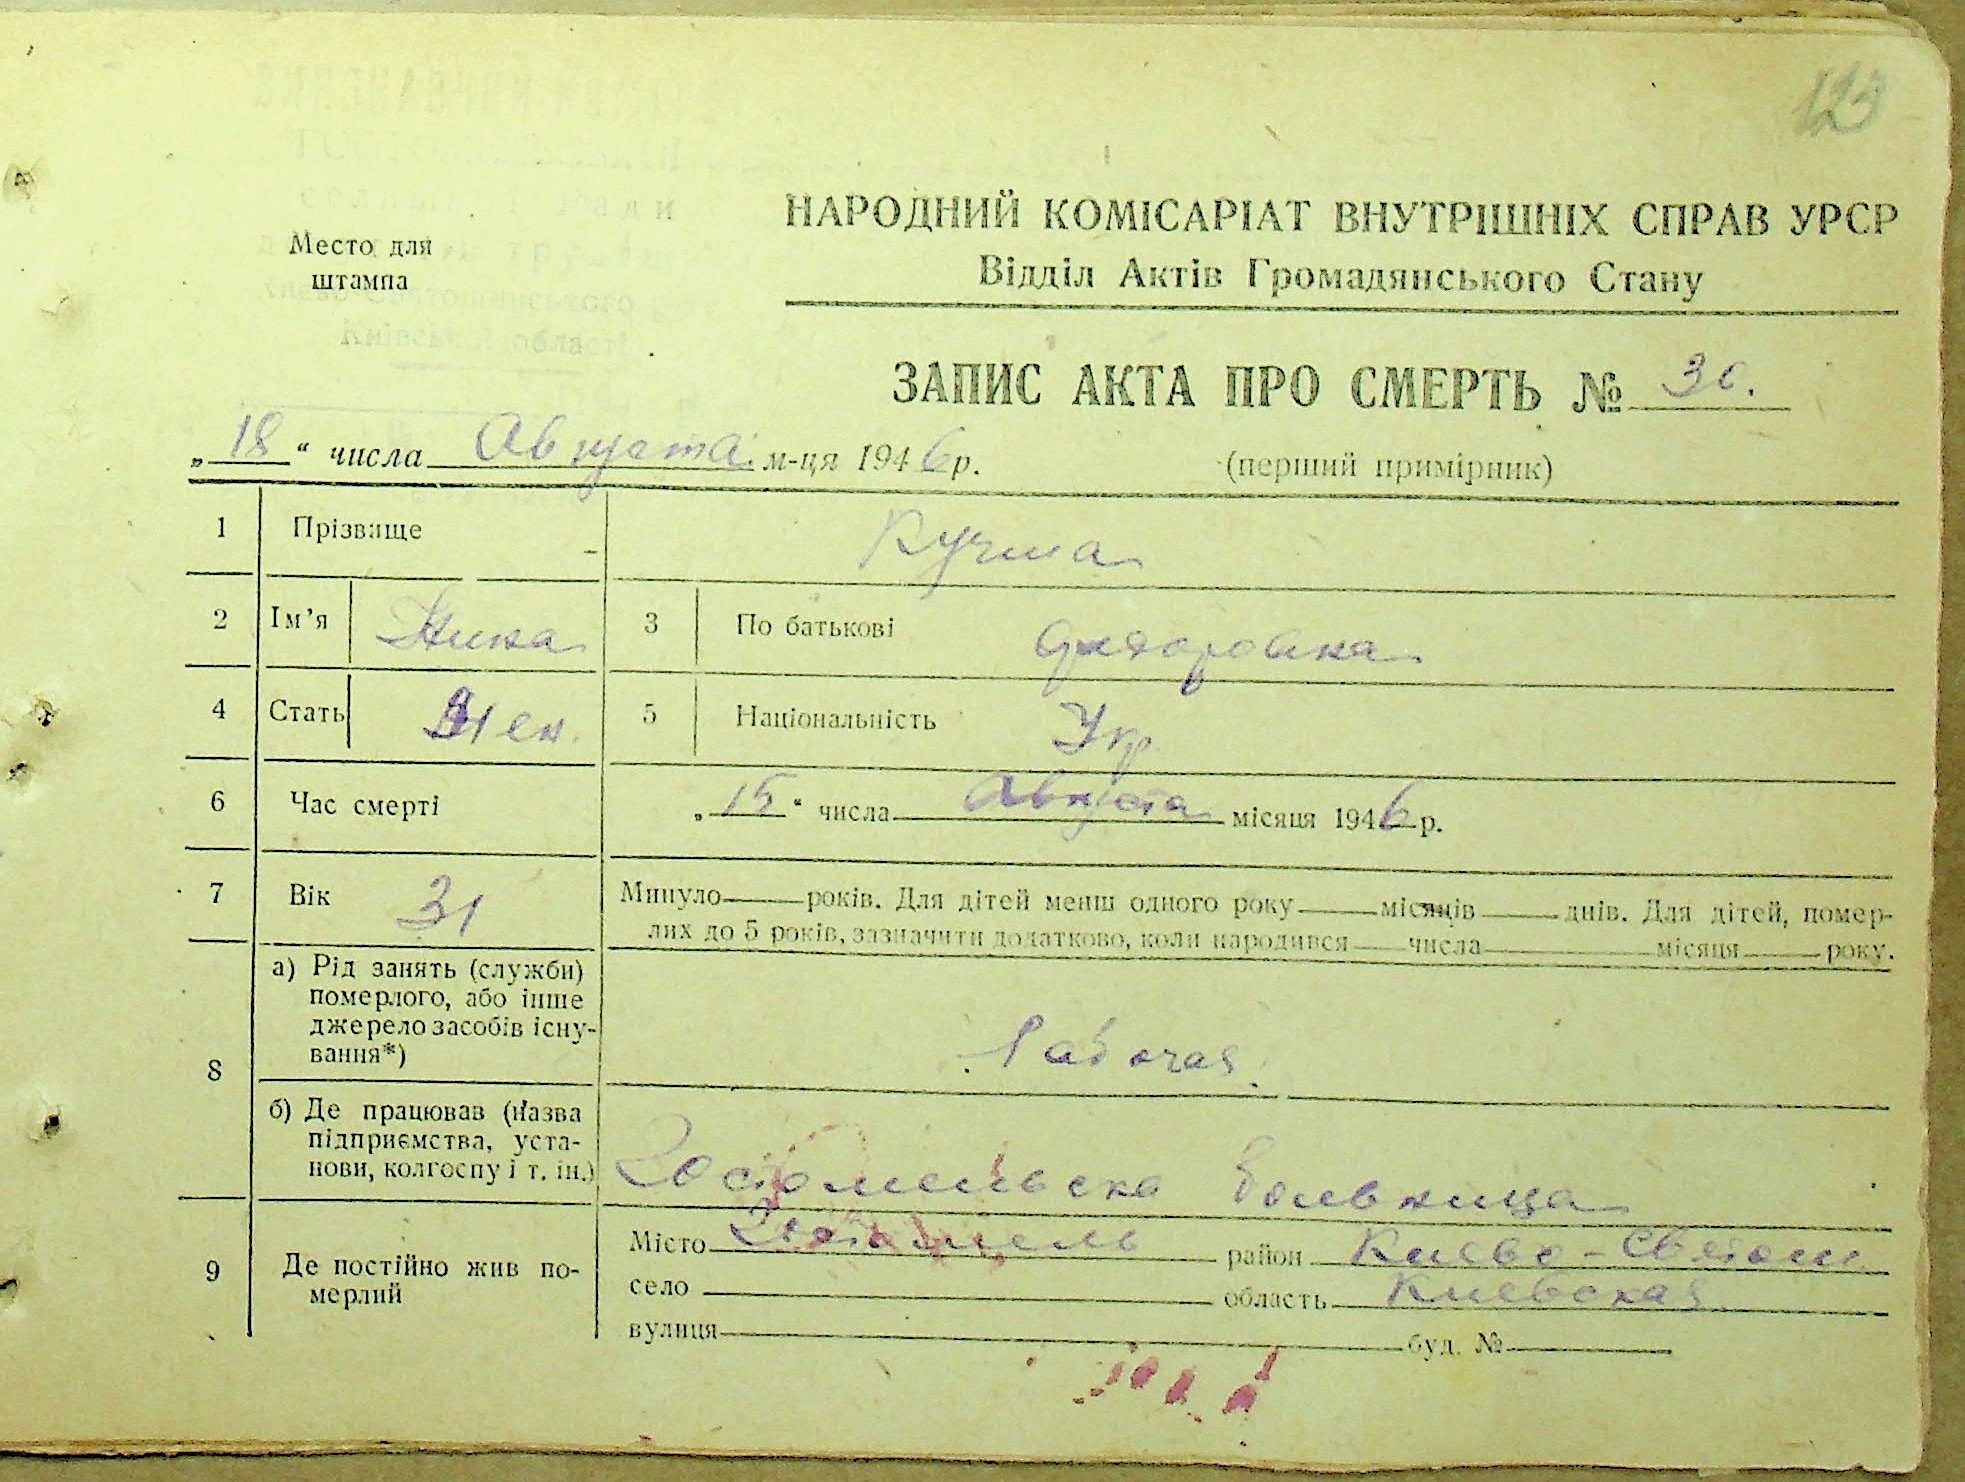 123
Место для
штампа
НАРОДНИЙ КОМІСАРІАТ ВНУТРІШНІХ СПРАВ УРСР
Відділ Актів Громадянського Стану
ЗАПИС АКТА ПРО СМЕРТЬ № 30.
„18“ числа Августа м-ця 1946 р. (перший примірник)
1 Прізвище Кучма
2 Ім’я Нина 3 По батькові
4 Стать Жен. 5 Національність Укр
6 Час смерті „15“ числа Августа місяця 1946 р.
7 Вік 31 Минуло року років. Для дітей менш одного року місяців днів. Для дітей, помер-
лих до 5 років, зазначити додатково, коли народився числа місяця року.
8 а) Рід занять (служби)
померлого, або інше
джерело засобів існу-
вання*) Рабочая.
б) Де працював (назва
підприємства, уста-
нови, колгоспу і т. ін.) Гостомельска больница
9 Де постійно жив по-
мерлий
Місто Гостомель район Киево-Святош
село область Киевская
вулиця буд. №